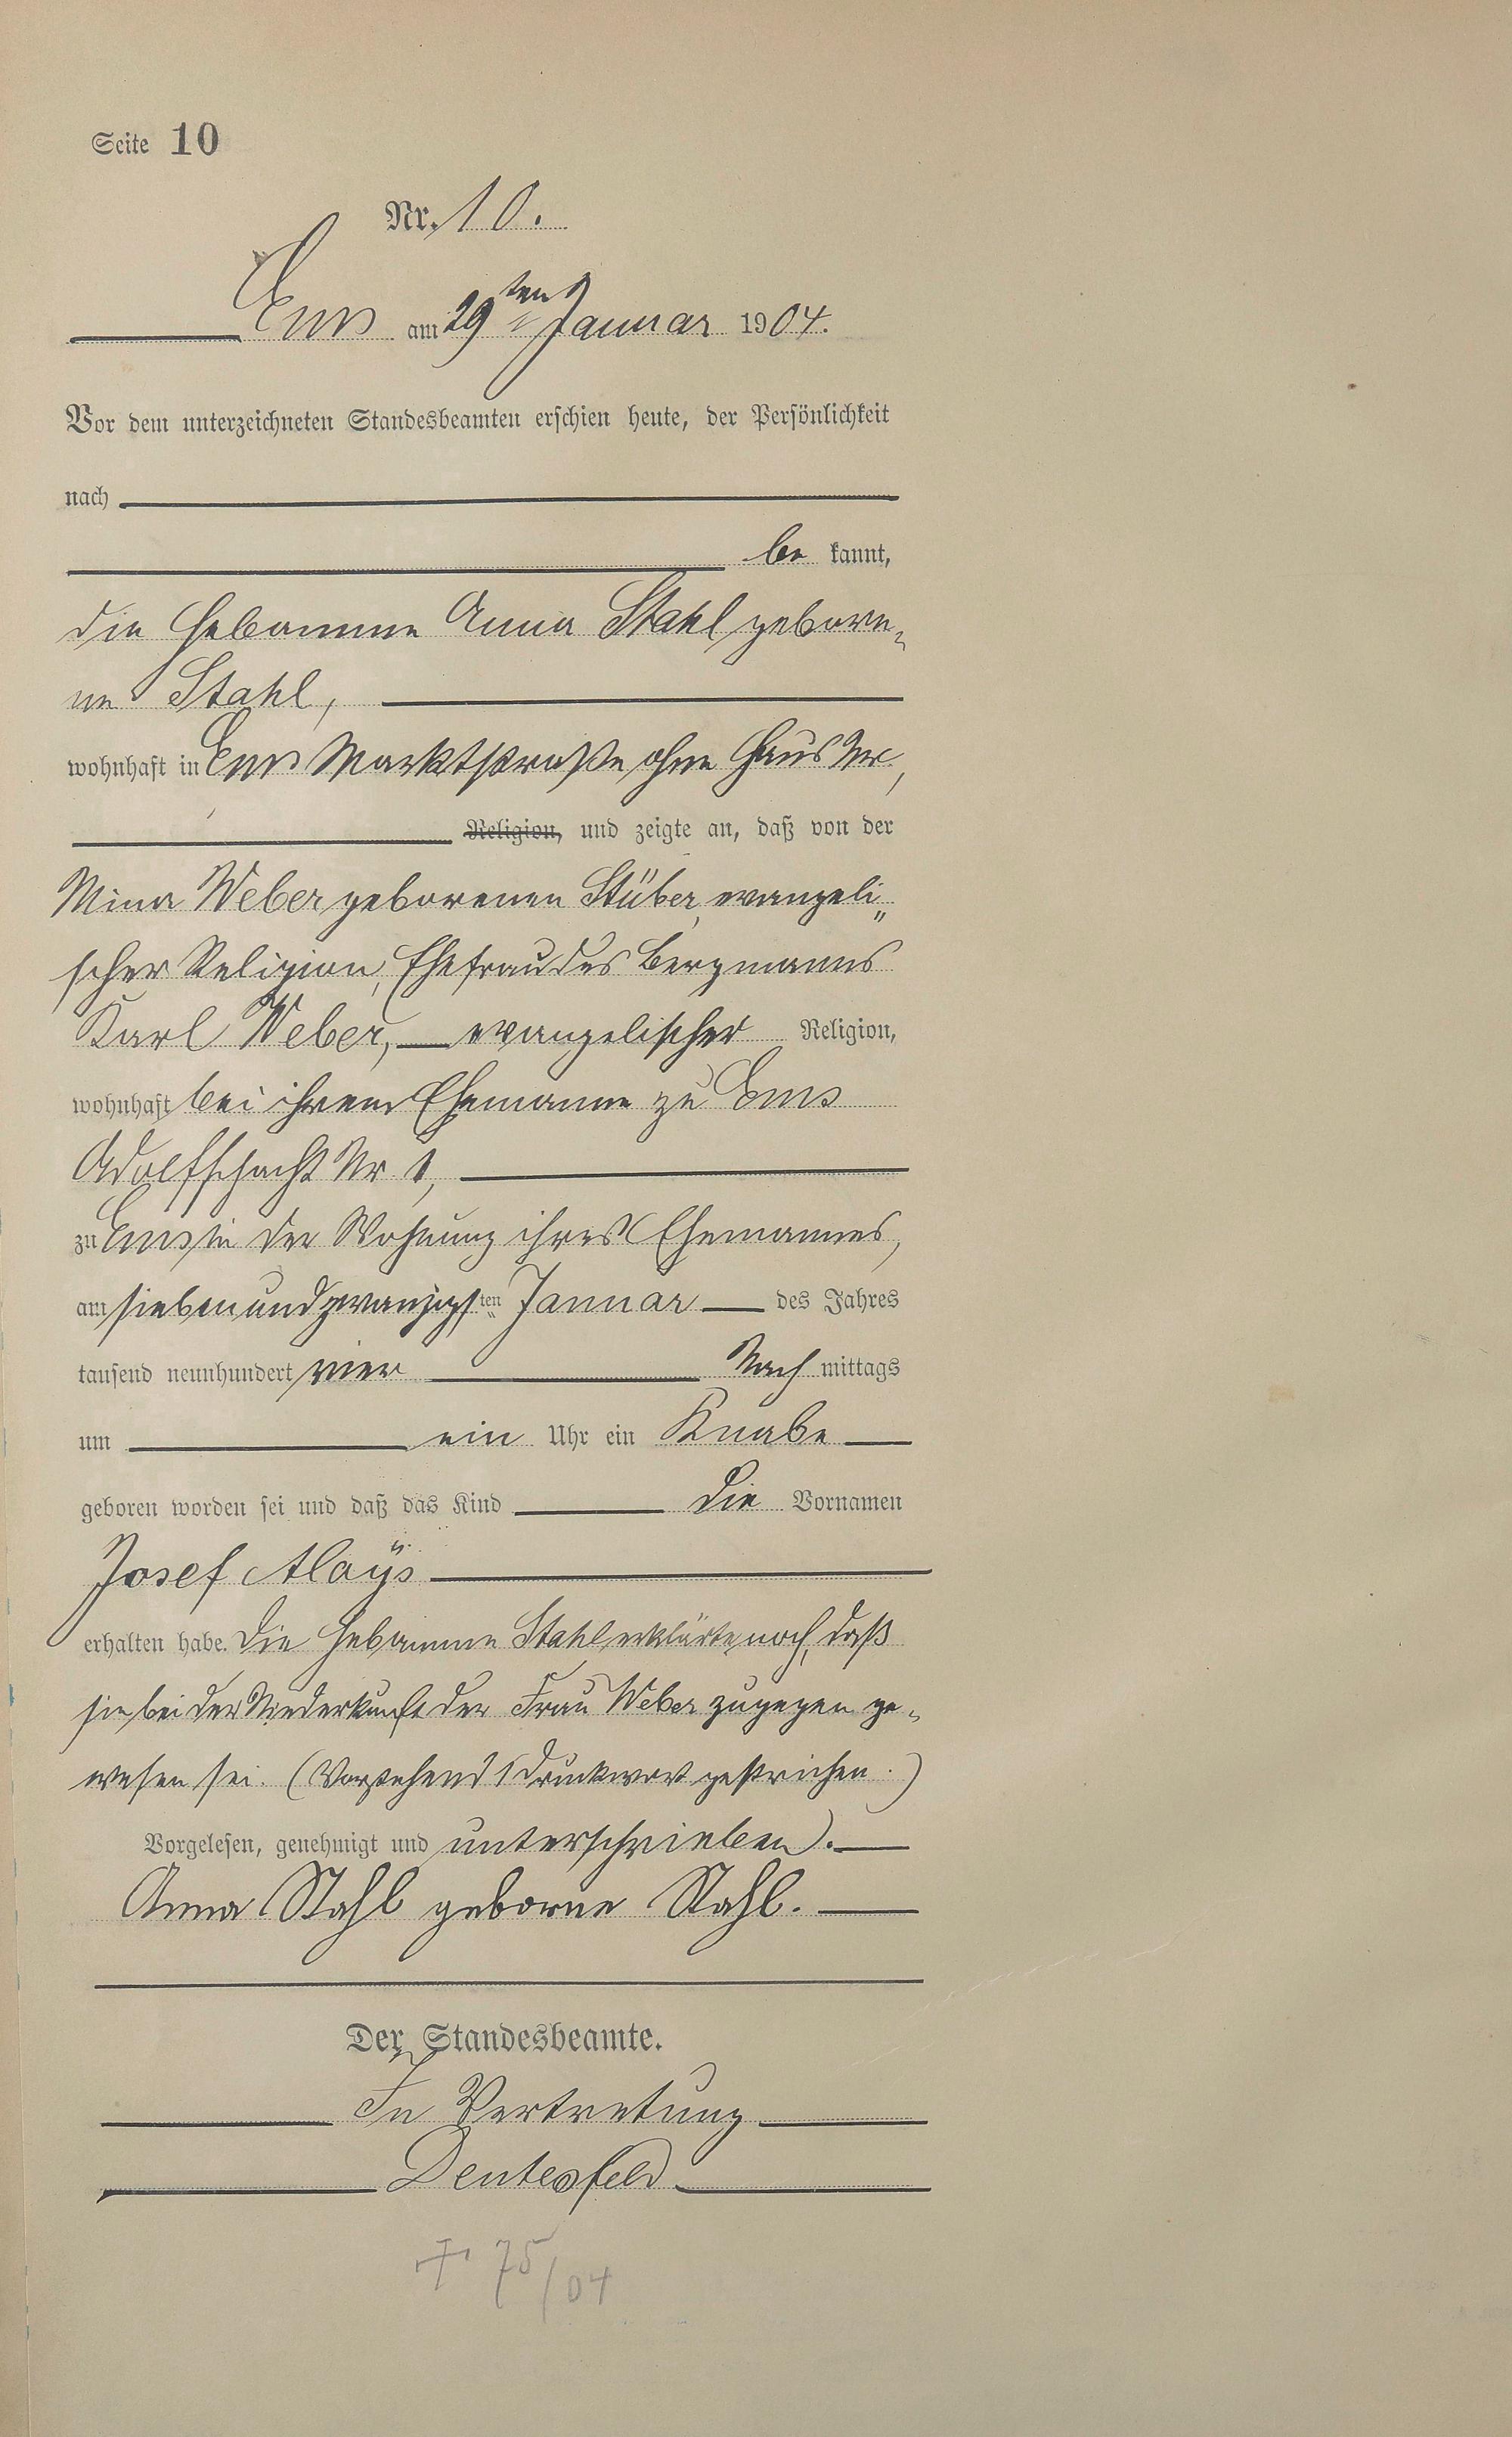 Seite 10
Nr. 10.
Ems am 29ten Januar 1904.
Vor dem unterzeichneten Standesbeamten erschien heute, der Persönlichkeit
nach
be kannt,
die Hebamme Anna Stahl gebore-
ne Stahl,
wohnhaft in Ems Marktstraße ohne Haus Nr,
Religion, und zeigte an, daß von der
Mina Weber geborenen Stüber, evangeli„
scher Religion, Ehefrau des Bergmanns
Karl Weber, evangelischer Religion,
wohnhaft bei ihrem Ehemanne zu Ems
Adolfschacht Nr 1,
zu Ems in der Wohnung ihres Ehemannes,
am siebenundzwanzigsten Januar des Jahres
tausend neunhundert vier Nach mittags
um ein Uhr ein Knabe
geboren worden sei und daß das Kind die Vornamen
Josef Aloÿs
erhalten habe. Die Hebamme Stahl erklärte noch, daß
sie bei der Niederkunft der Frau Weber zugegen ge-
wesen sei. (Vorstehend 1 Druckwort gestrichen.)
Vorgelesen, genehmigt und unterschrieben.
Anna Stahl geborne Stahl.
Der Standesbeamte.
In Vertretung
† 75/04